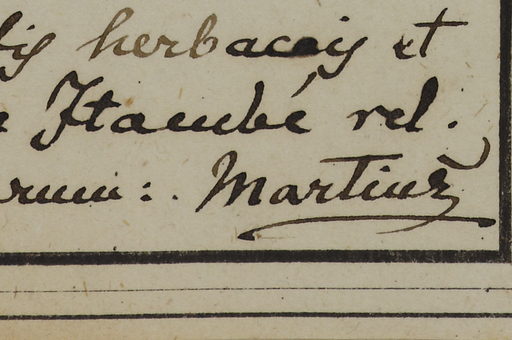 herbaceis et
Itambé rel.
Martius